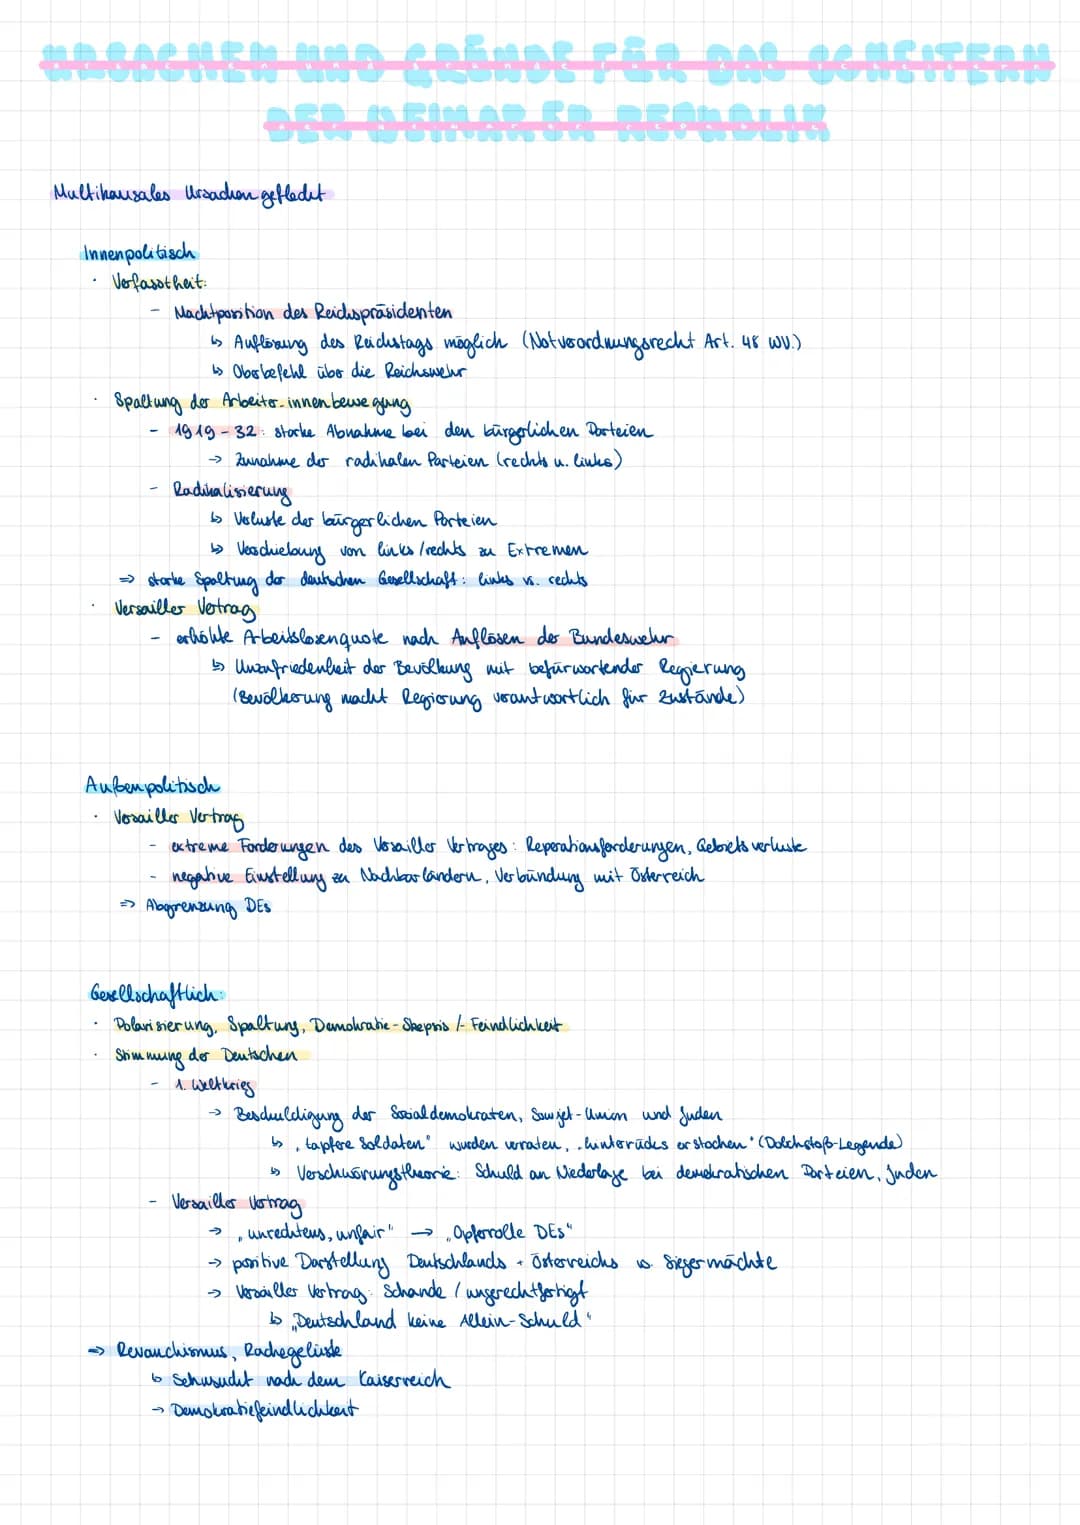 URSACHEN UND GRÜNDE FÜR DAS SCHEITERN
DER WEIMARER REPUBLIK
Multikausales Ursachengeflecht
Innenpolitisch
· Verfasstheit:
- Machtposition des Reichspräsidenten
↳ Auflösung des Reichstags möglich (Notverordnungsrecht Art. 48 WV.)
↳ Oberbefehl über die Reichswehr
· Spaltung der Arbeiter_innenbewegung
- 1919-32: starke Abnahme bei den bürgerlichen Parteien
→ Zunahme der radikalen Parteien (rechts u. links)
- Radikalisierung
↳ Verluste der bürgerlichen Parteien
↳ Verschiebung von links/rechts zu Extremen
⇒ starke Spaltung der deutschen Gesellschaft: links vs. rechts
· Versailler Vertrag
- erhöhte Arbeitslosenquote nach Auflösen der Bundeswehr
↳ Unzufriedenheit der Bevölkung mit befürwortender Regierung
(Bevölkerung macht Regierung verantwortlich für Zustände)
Außenpolitisch
· Versailler Vertrag
- extreme Forderungen des Versailler Vertrages: Reperationsforderungen, Gebietsverluste
- negative Einstellung zu Nachbarländern, Verbündung mit Österreich
⇒ Abgrenzung DEs
Gesellschaftlich:
· Polarisierung, Spaltung, Demokratie-Skepsis /-Feindlichkeit
· Stimmung der Deutschen
- 1. Weltkrieg
→ Beschuldigung der Sozialdemokraten, Sowjet-Union und Juden
↳ „tapfere Soldaten" wurden verraten, „hinterrücks erstochen" (Dolchstoß-Legende)
↳ Verschwörungstheorie: Schuld an Niederlage bei demokratischen Parteien, Juden
- Versailler Vertrag
→ „unrechtens, unfair" → „Opferrolle DEs"
→ positive Darstellung Deutschlands + Österreichs vs. Siegermächte
→ Versailler Vertrag: Schande / ungerechtfertigt
↳ „Deutschland keine Allein-Schuld"
⇒ Revanchismus, Rachegelüste
↳ Sehnsucht nach dem Kaiserreich
→ Demokratiefeindlichkeit